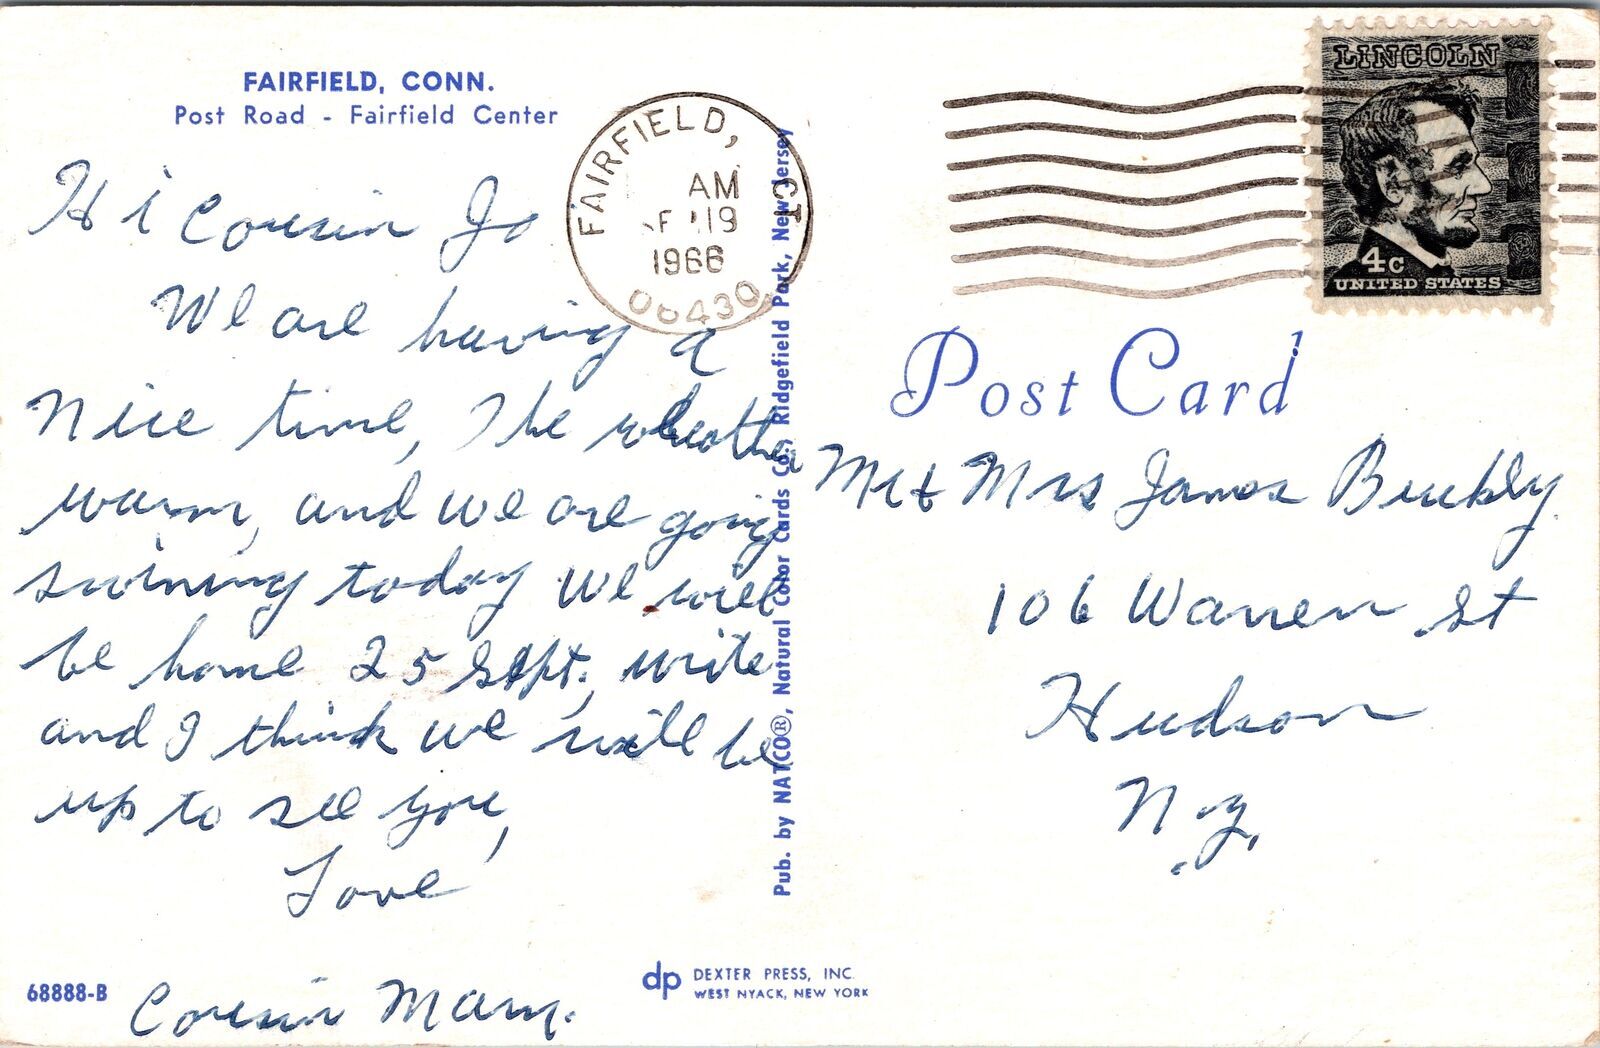 FAIRFIELD, CONN.
Post Road - Fairfield Center
Hi Cousin Jo
We are having a
nice time, The wheather
warm, and we are going
swiming today We will
be home 25 Sept., write
and I think we will be
up to see you,
Love
Cousin Mary.
68888-B
FAIRFIELD, CT
AM
19
1966
06430
Pub. by NATCO®, Natural Color Cards Co., Ridgefield Park, New Jersey
dp DEXTER PRESS, INC.
WEST NYACK, NEW YORK
LINCOLN
4c
UNITED STATES
Post Card
Mr & Mrs James
106 Warren St
Hudson
N.Y.